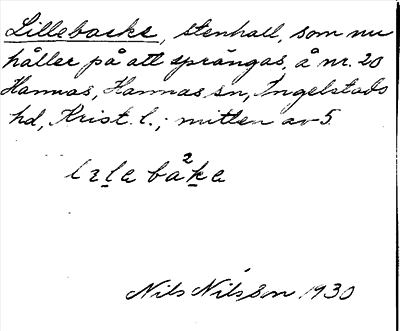 Lillebacke, stenhall, som nu
håller på att sprängas, å nr. 20
Hannas, Hannas sn, Ingelstads
hd, Krist. l.; mitten av 5.
lɪla ba²ka
Nils Nilsson 1930